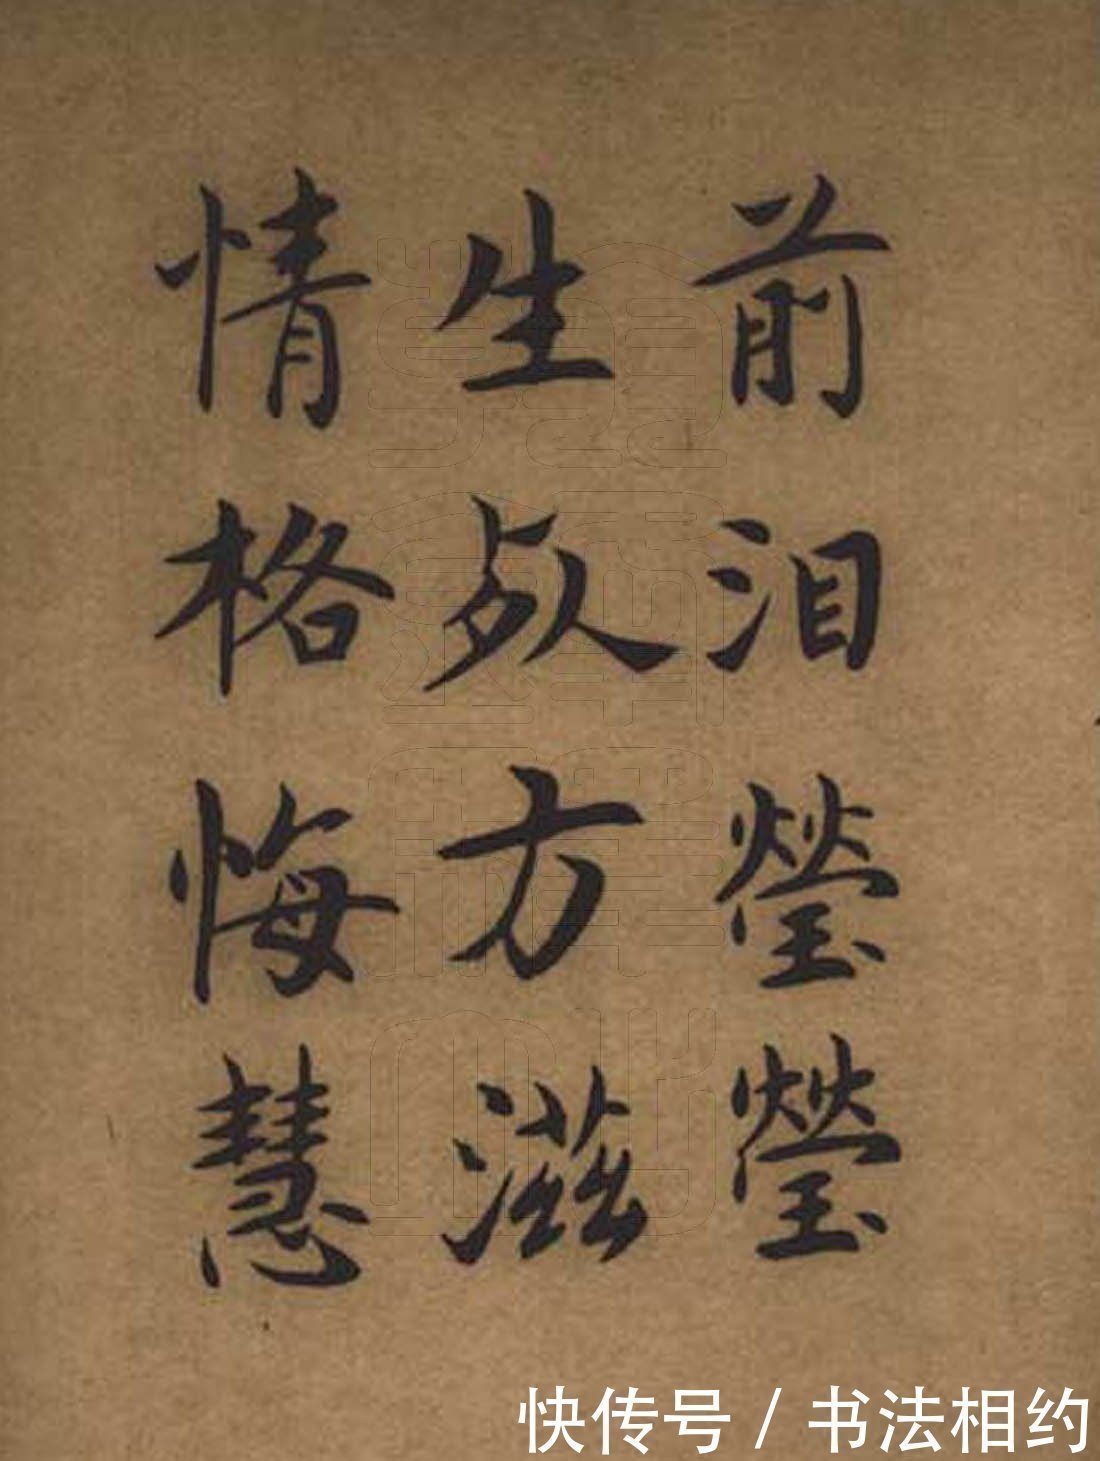 前泪瑩瑩
生於方滋
情格悔慧
快传号/书法相约